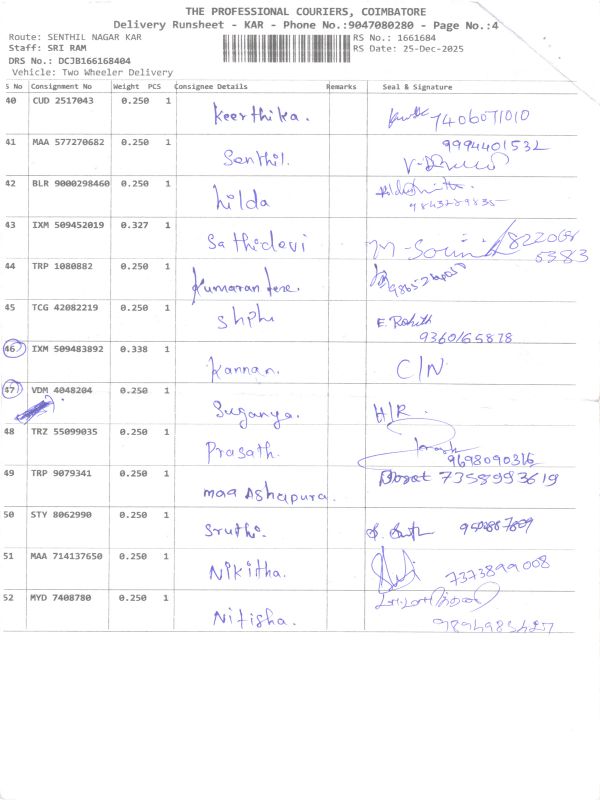 THE PROFESSIONAL COURIERS, COIMBATORE
Delivery Runsheet - KAR - Phone No.:9047080280 - Page No.:4
Route: SENTHIL NAGAR KAR RS No.: 1661684
Staff: SRI RAM RS Date: 25-Dec-2025
DRS No.: DCJB166168404
Vehicle: Two Wheeler Delivery
S No Consignment No Weight PCS Consignee Details Remarks Seal & Signature
40 CUD 2517043 0.250 1 Keerthika. 7406071010
41 MAA 577270682 0.250 1 Senthil. 9994401532
42 BLR 9000298460 0.250 1 hilda 9843289835
43 IXM 509452019 0.327 1 Sathidevi 8220651
5383
44 TRP 1080882 0.250 1 Kumaran
45 TCG 42082219 0.250 1 E. Rohith
9360165878
46 IXM 509483892 0.338 1 Kannan. C/N
47 VDM 4048204 0.250 1 Suganya. H/R.
48 TRZ 55099035 0.250 1 Prasath. 9698090316
49 TRP 9079341 0.250 1 maa Ashapura. 7358993619
50 STY 8062990 0.250 1 Sruthi.
51 MAA 714137650 0.250 1 Nikitha. 7373899008
52 MYD 7408780 0.250 1 Nitisha.